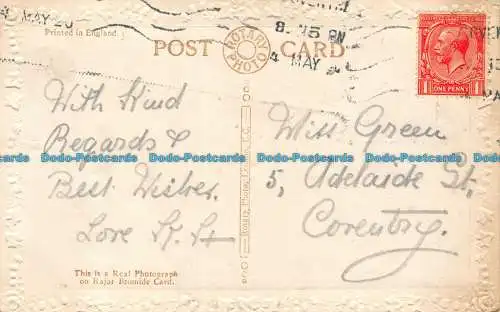 MAY 20
Printed in England
POST CARD
ROTARY PHOTO
8.15 PM
4 MAY
ONE PENNY
With Kind
Regards &
Best Wishes.
Love
Miss Green
5, Adelaide St.
Coventry.
This is a Real Photograph
on Rajar Bromide Card.
Dodo-Postcards Dodo-Postcards Dodo-Postcards Dodo-Postcards